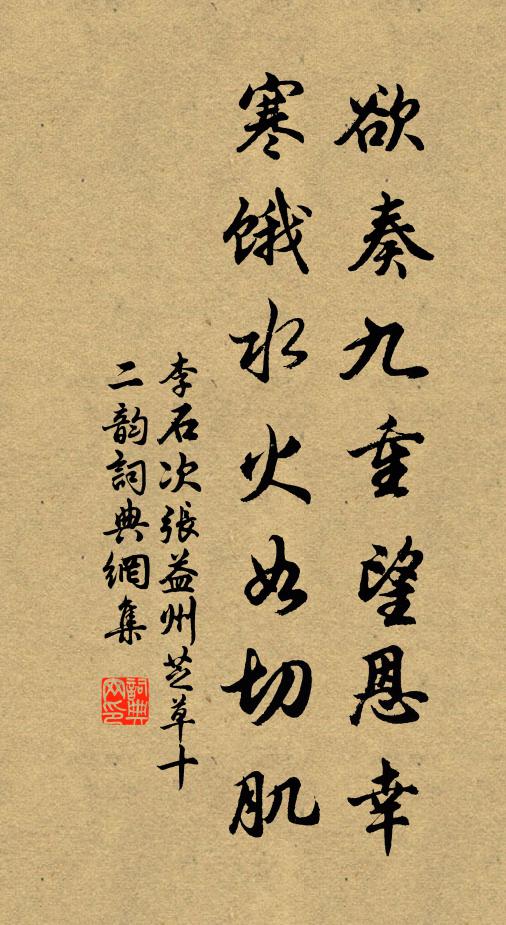 欲奏九重望恩幸
寒餓水火如切肌
李石次張益州芝草十
二韵詞典網集
詞典網印